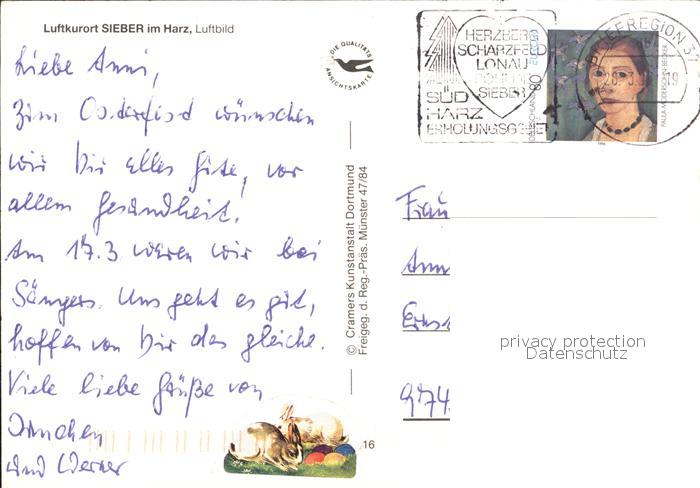 Luftkurort SIEBER im Harz, Luftbild
Liebe Anni,
Zum Osterfest wünschen
wir Dir alles Gute, vor
allem Gesundheit.
Am 17.3 waren wir bei
Sängers. Uns geht es gut,
hoffen von Dir das gleiche.
Viele liebe Grüße von
Ännchen
und Werner
DIE QUALITÄTS
ANSICHTSKARTE
© Cramers Kunstanstalt Dortmund
Freigeg. d. Reg.-Präs. Münster 47/84
16
HERZBERG
SCHARZFELD
LONAU
SIEBER
SÜD
HARZ
ERHOLUNGSGEBIET
BRIEFREGION 37
80
PAULA MODERSOHN-BECKER
1996
Frau
Ann
Erns
9174
privacy protection
Datenschutz